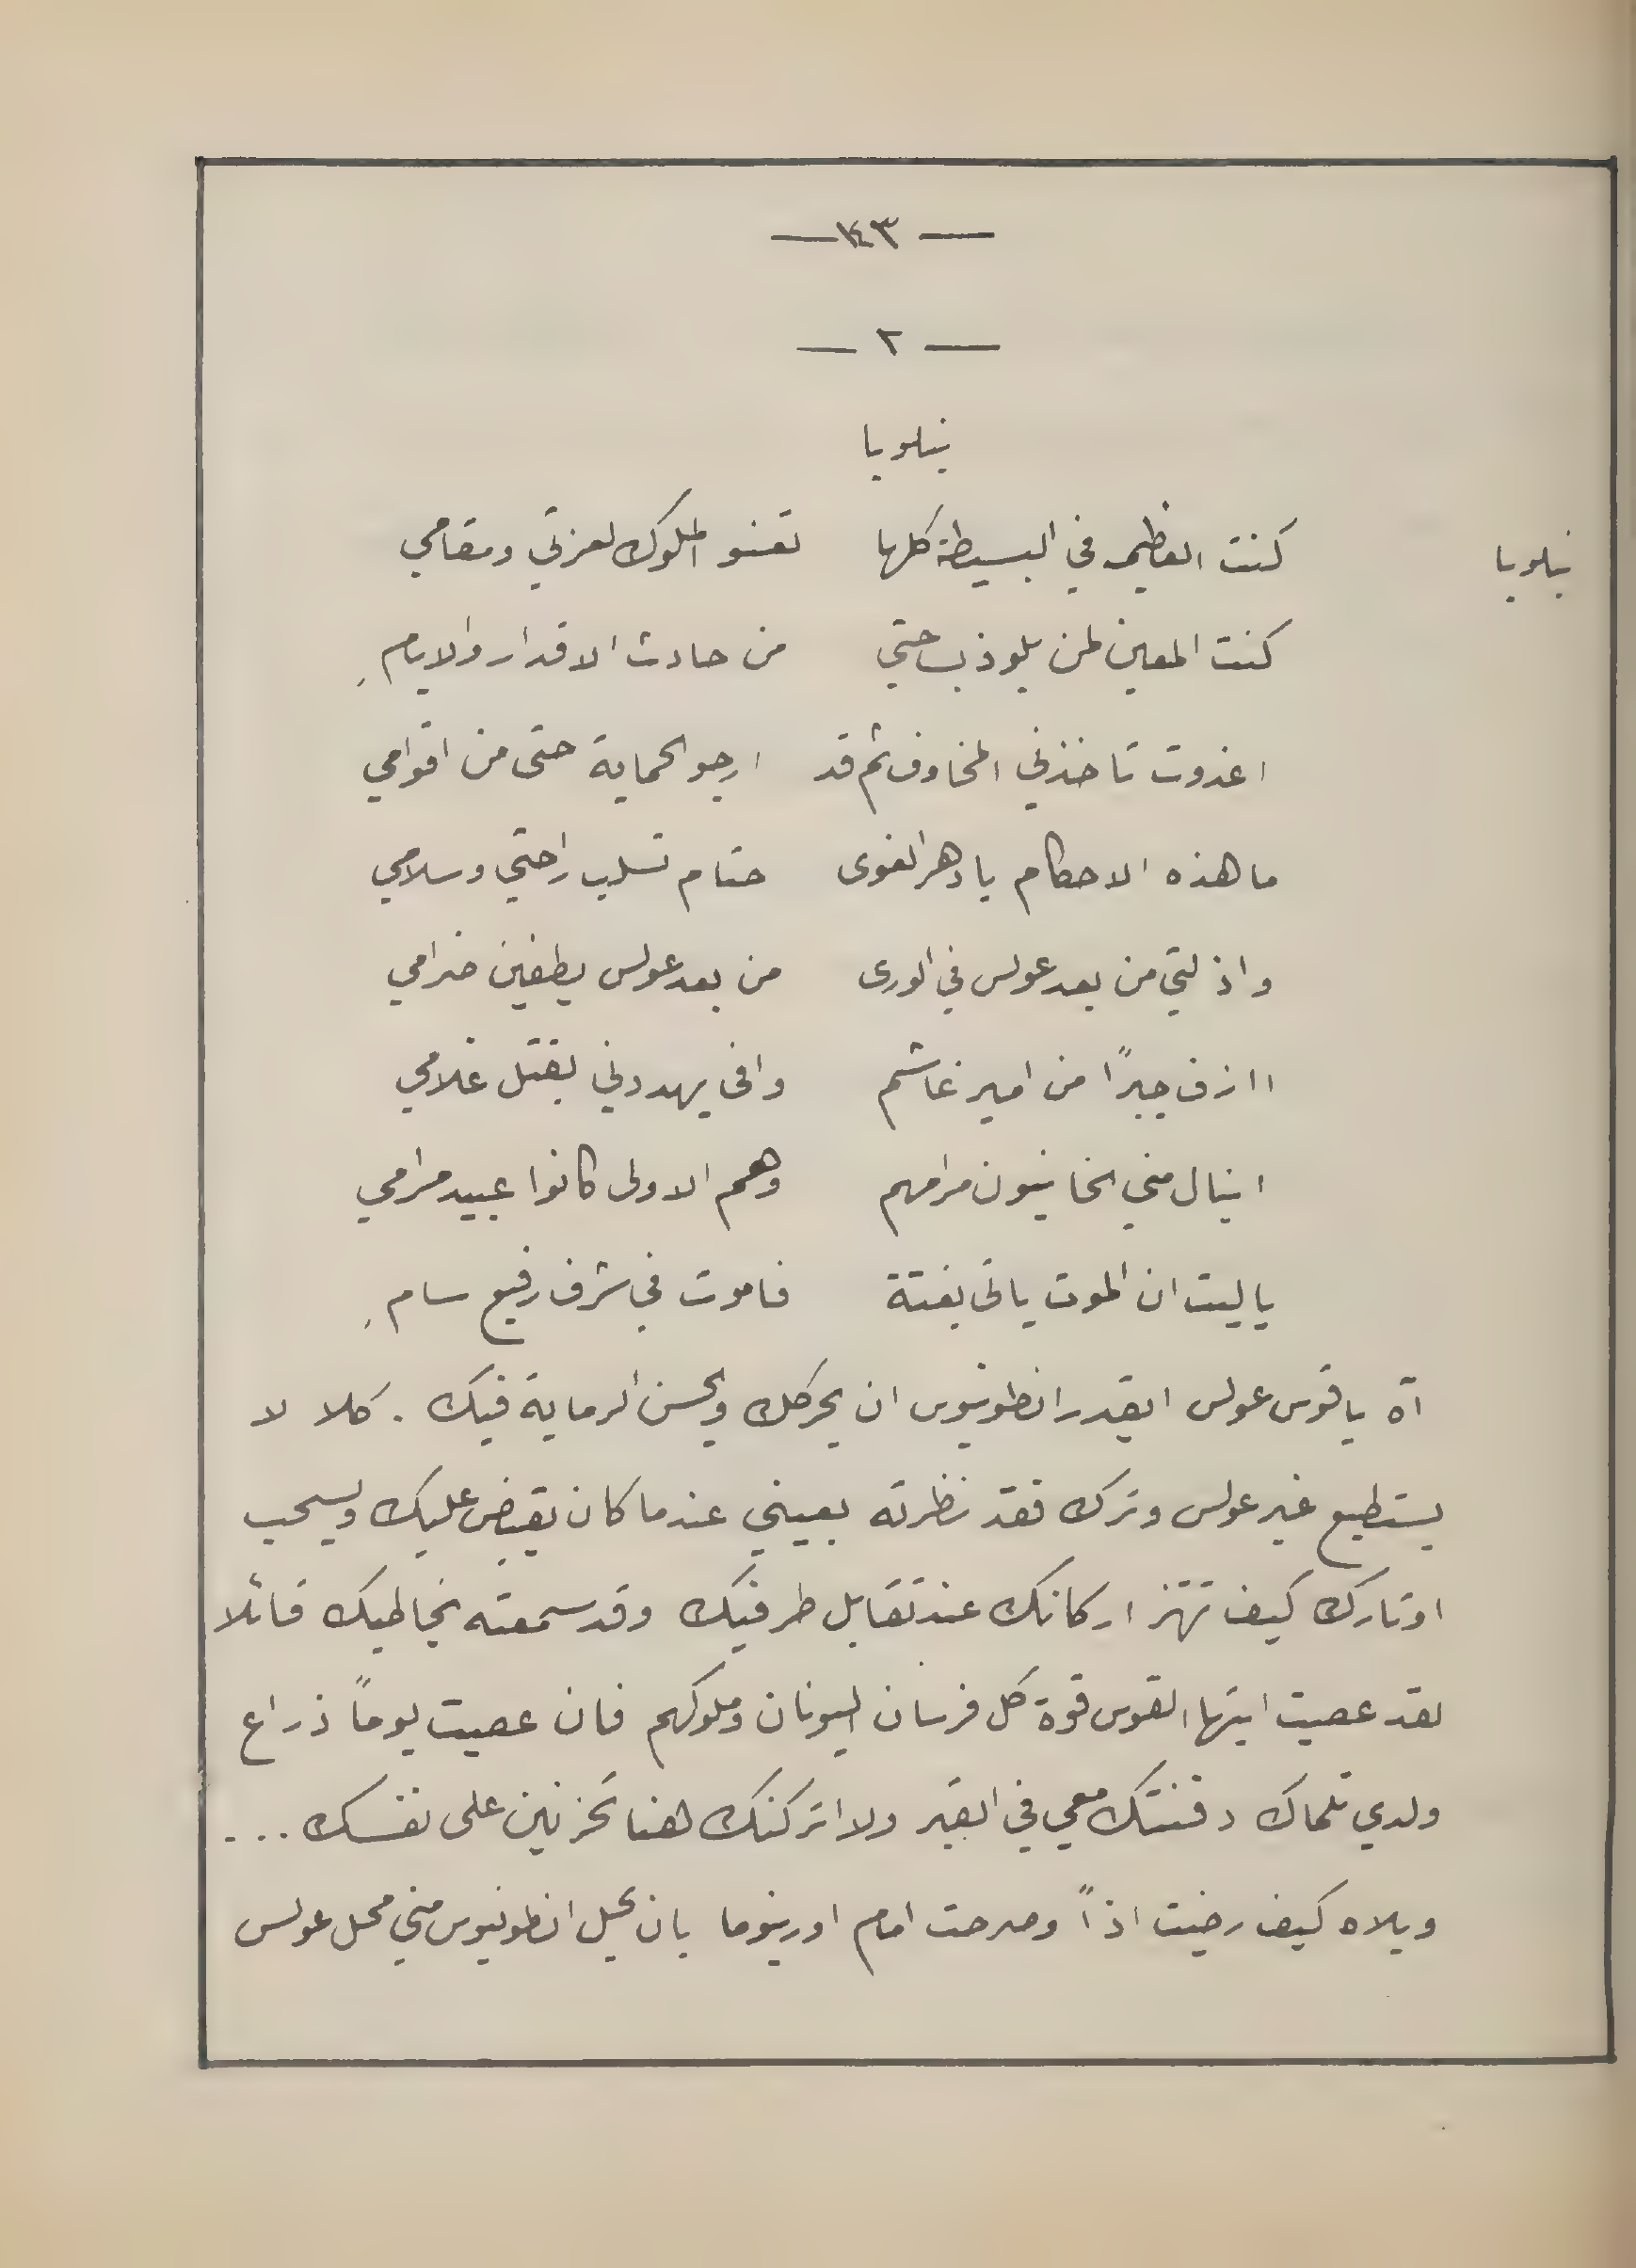 — ١٤٣ —
— ٢ —
نيلوبا
نيلوبا كنت العظيمه في البسيطة كلها تعنو الملوك لعزتي ومقامي
كنت المعين لمن يلوذ بساحتي من حادث الاقدار والايامِ
اغدوت تاخذني المخاوف ثم قد ارجو الحماية حتى من اقوامي
ما هذه الاحكام يا دهر الغوى حتام تسلب راحتي وسلامي
واذلتي من بعد عولس في الورى من بعد عولس يطفين ضرامي
اازف جبرًا من امير غاشم وافى يهددني بقتل غلامي
اينال مني الخاينون مرامهم وهم الاولى كانوا عبيد مرامي
يا ليت ان الموت ياتى بغتة فاموت في شرف رفيع سامِ
آه يا قوس عولس ايقدر انطونيوس ان يحركك ويحسن الرماية فيك . كلا لا
يستطيع غير عولس وترك فقد نظرته بعيني عندما كان يقبض عليك ويسحب
اوتارك كيف تهتز اركانك عند تقابل طرفيك وقد سمعته يخاطبك قائلا
لقد عصيت ايتها القوس قوة كل فرسان اليونان وملوكهم فان عصيت يوماً ذراع
ولدي تلماك دفنتك معي في القبر ولا اتركنك هنا تحزنين على نفسك ...
ويلاه كيف رضيت اذاً وصرحت امام اورينوما بان يحل انطونيوس مني محل عولس